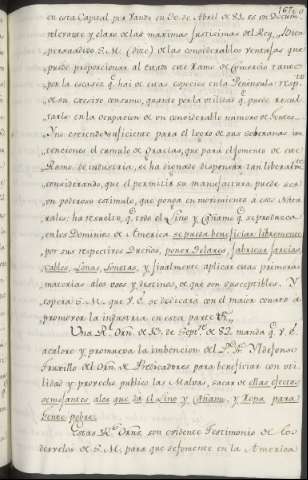 en esta Capital por Vando en 30. de Abril de 81. es un Docum.
televante y claro de las maximas justisimas del Rey, "Bien
"persuadido S.M. (dize) de las considerables ventajas que
"puede proporcionar al Estado este Ramo de Comercio tanto
"por la escasès q. hai de estas especies en la Peninsula resp.to
"de su excesivo consumo, quanto por la utilidad q. puede resul-
"tarle en la ocupacion de un considerable numero de Gentes.
"No creiendo suficiente para el logro de sus soberanas in-
"tenciones el cumulo de Gracias, que para el fomento de este
"Ramo de industria, se ha dignado dispensar tan liberalm.te
"considerando, que el permitir su manufactura puede ser
"un poderoso estimulo, que ponga en movimiento a esos Natu-
"rales; ha resuelto, q. todo el Lino y Cañamo q. se produzca
"en los Dominios de America se pueda beneficiar libremente
"por sus respectivos Dueños, poner Telares, fabricar Jarcias
"Cables, Lonas, Lonetas, y finalmente aplicar estas primeras
"materias a los usos y destinos, de que son susceptibles. Y
"espera S.M. que V.E. se dedicará con el maior conato a
"promover la industria en esta parte &.
Una R.l Orñ. de 13. de Sept.re de 82. manda q. V.E.
acalore y promueva la imbencion del P. Fr. Yldefonso
Truxillo del Orñ. de Predicadores para beneficiar con uti-
lidad y provecho publico las Malvas, sacar de ellas efectos
semejantes a los que dà el Lino y Cañamo, y Ropa para
Gente pobre.
Estas R.s Orñs. son evidente Testimonio de los
desvelos de S.M. para que se fomente en la America